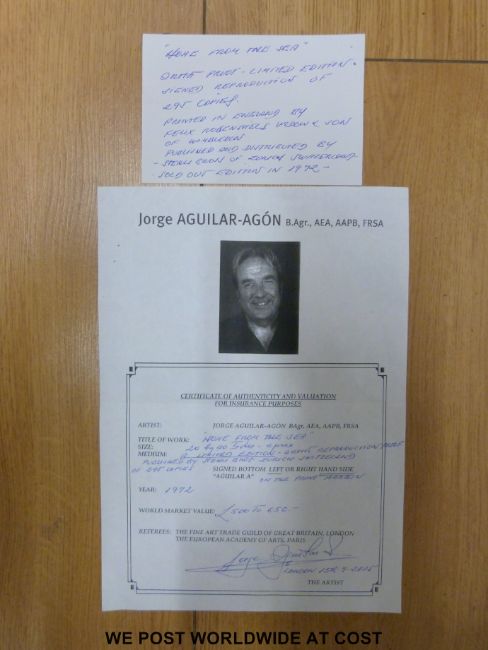 "HOME FROM THE SEA"
PRINT - LIMITED EDITION.
SIGNED REPRODUCTION OF
295 COPIES.
PRINTED IN ENGLAND BY
FELIX ROSENSTIELS WIDOW & SON
OF
PUBLISHED AND DISTRIBUTED BY
OF ZURICH SWITZERLAND.
SOLD OUT EDITION IN 1972 -
Jorge AGUILAR-AGÓN B.Agr., AEA, AAPB, FRSA
CERTIFICATE OF AUTHENTICITY AND VALUATION
FOR INSURANCE PURPOSES
ARTIST: JORGE AGUILAR-AGÓN BAgr. AEA, AAPB, FRSA
TITLE OF WORK: "HOME FROM THE SEA"
SIZE:
MEDIUM: LIMITED EDITION - REPRODUCTION
PUBLISHED BY ZURICH SWITZERLAND
OF 295 COPIES
SIGNED BOTTOM LEFT OR RIGHT HAND SIDE
"AGUILAR A" ON THE PRINT
YEAR: 1972
WORLD MARKET VALUE: £500 TO 650 -
REFEREES: THE FINE ART TRADE GUILD OF GREAT BRITAIN, LONDON
THE EUROPEAN ACADEMY OF ARTS, PARIS
LONDON 2015
THE ARTIST
WE POST WORLDWIDE AT COST